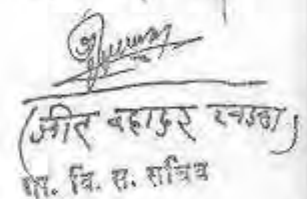 (जीत बहादुर खड्का)
गा. वि. स. सचिव